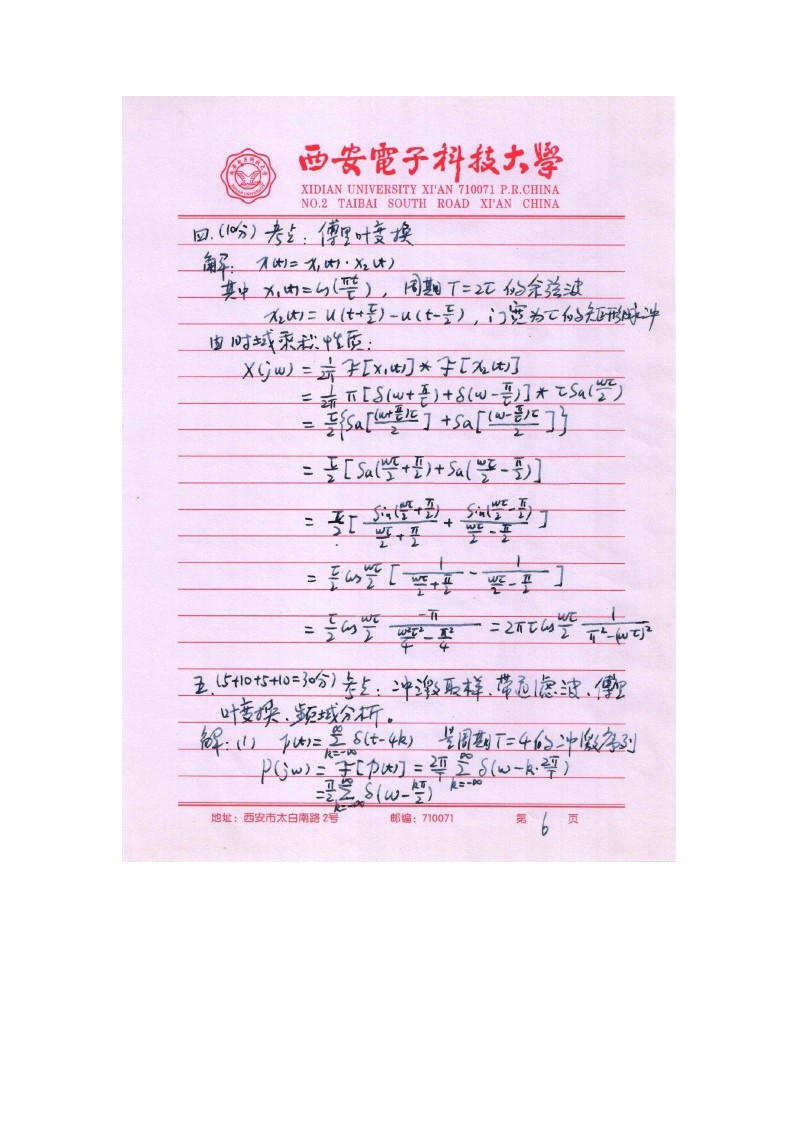 西安電子科技大學
XIDIAN UNIVERSITY XI'AN 710071 P.R.CHINA
NO.2 TAIBAI SOUTH ROAD XI'AN CHINA
四.(10分) 考点: 傅里叶变换
解: x(t)=x₁(t)·x₂(t)
其中 x₁(t)=cos(πt/τ), 周期T=2τ的余弦波
x₂(t)=u(t+τ/2)-u(t-τ/2), 门宽为τ的矩形脉冲
由时域乘积性质:
X(jω)=1/2π F[x₁(t)]*F[x₂(t)]
=1/2π π[δ(ω+π/τ)+δ(ω-π/τ)]*τSa(ωτ/2)
=τ/2{Sa[(ω+π/τ)τ/2]+Sa[(ω-π/τ)τ/2]}
=τ/2[Sa(ωτ/2+π/2)+Sa(ωτ/2-π/2)]
=τ/2[sin(ωτ/2+π/2)/(ωτ/2+π/2)+sin(ωτ/2-π/2)/(ωτ/2-π/2)]
=τ/2 cos ωτ/2 [1/(ωτ/2+π/2)-1/(ωτ/2-π/2)]
=τ/2 cos ωτ/2 · -π/(ω²τ²/4-π²/4) =2πτ cos ωτ/2 · 1/(π²-(ωτ)²)
五.(5+10+5+10=30分) 考点: 冲激取样、带通滤波、傅里
叶变换、频域分析。
解:(1) p(t)=∑_{k=-∞}^{∞} δ(t-4k) 是周期T=4的冲激序列
P(jω)=F[p(t)]=2π/T ∑_{k=-∞}^{∞} δ(ω-k·2π/T)
=π/2 ∑_{k=-∞}^{∞} δ(ω-kπ/2)
地址: 西安市太白南路2号 邮编: 710071 第 6 页